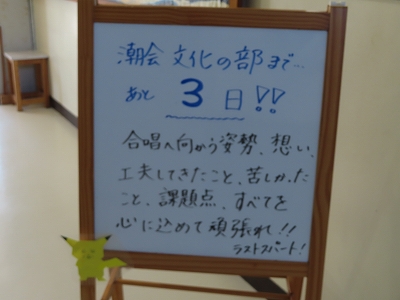 潮会 文化の部まで…
あと 3 日!!
合唱へ向かう姿勢、想い、
工夫してきたこと、苦しかった
こと、課題点、すべてを
心に込めて頑張れ!!
ラストスパート!